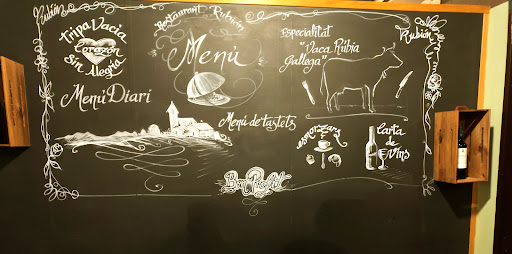 Rubión
Tripa Vacía
Corazón
Sin Alegría
Menú Diari
Restaurant Rubión
Menú
Menú de tastets
Especialitat
"Vaca Rubia
Gallega"
Rubión
esmorzars
Carta
de
Vins
Bon Profit